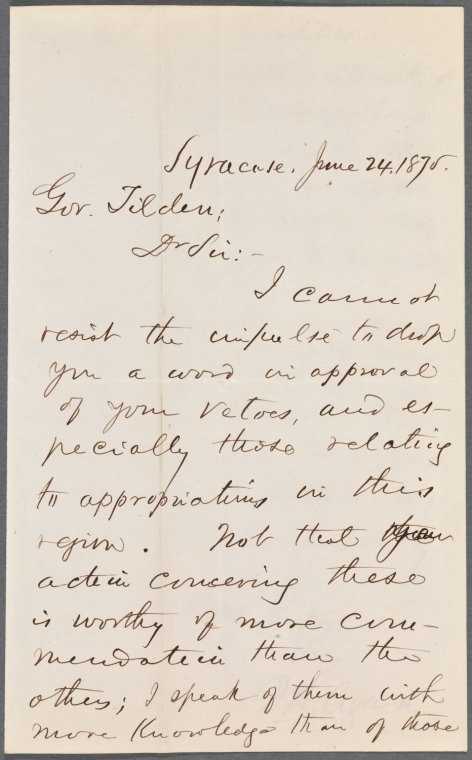 Syracuse. June 24, 1875.
Gov. Tilden;
Dr Sir:-
I cannot
resist the impulse to drop
you a word in approval
of your vetoes, and es-
pecially those relating
to appropriations in this
region. Not that your
action concerning these
is worthy of more com-
mendation than the
others; I speak of them with
more knowledge than of those